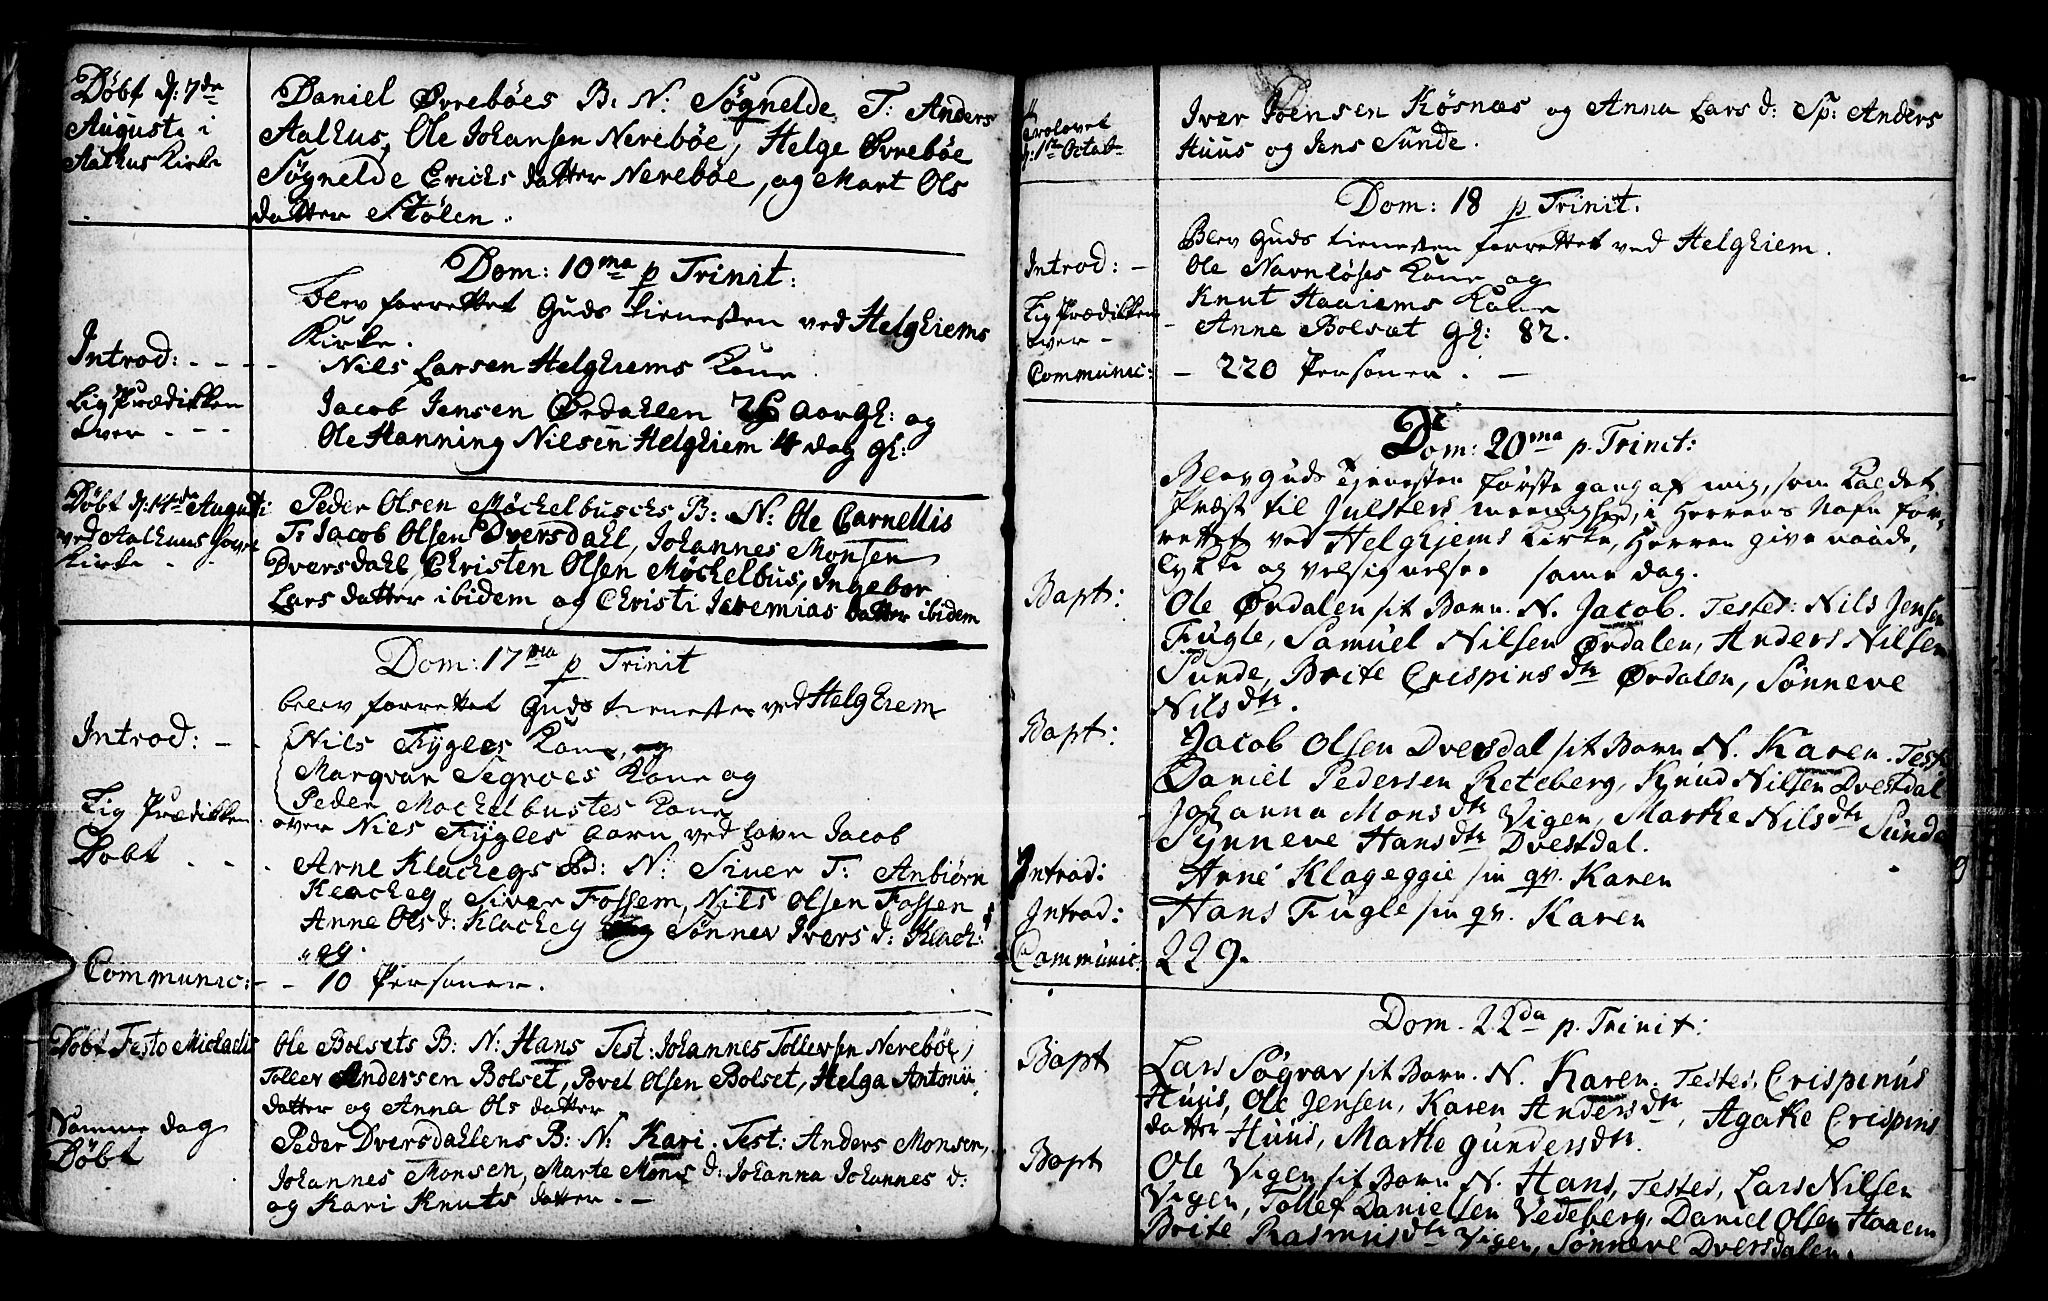 Døbt d: 7de
Augusti i
Aalhus Kirke
Daniel Øvrebøes B: N: Søgnelde. T: Anders
Aalhus, Ole Johansen Nerebøe, Helge Øvrebøe
Søgnelde Erichs datter Nerebøe, og Mart Ols
datter Stølen.
Dom: 10ma p Trinit:
blev forrettet Guds tienesten ved Helghiems
Kirke.
Introd: - - - - Nils Larsen Helghiems Kone.
Lig Prædikken
over - - -
Jacob Jensen Ørdahlen aar gl: og
Ole Hanning Nilsen Helghiem 4 dag gl:
Døbt d: 14de Augusti
ved Aalhuus
Kirke - .
Peder Olsen Møchelbuschs B: N: Ole Carnellis
T: Jacob Olsen Dversdahl, Johannes Monsen
Dversdahl Christen Olsen Møchelbus, Ingebor
Lars datter ibidem og Christi Jeremias datter ibidem
Dom: 17ma p Trinit
blev forrettet Guds tienesten ved Helghiem
Introd: - - Nils Fygles Kone, og
Marqvar Segnoes Kone og
Peder Mochelbustes Kone
Lig Prædikken over Nils Fygles barn ved Navn Jacob
Døbt - - - Arne Klachegs B: N: Siver T: Anbiørn
Klacheg, Siver Fossem, Nils Olsen Fossen
Anne Ols d: Klacheg Sønnev Ivers d: Klach:
eg.
Communic: - - 10 Personer.
Døbt Festo Michaelis
Ole Bolsets B: N: Hans Test: Johannes Tollevsen Nerebøe,
Tollev Andersen Bolset, Povel Olsen Bolset, Helga Antonii
datter og Anna Ols datter
Samme dag
Døbt
Peder Dversdahlens B: N: Kari. Test: Anders Monsen,
Johannes Monsen, Marte Mons d: Johanna Johannes d:
og Kari Knuts datter. -
Trolovet
d: 1te Octob
Iver Joensen Kösnæs og Anna Lars d: Sp: Anders
Huus og Jens Sunde.
Dom: 18 p Trinit:
Blev Guds tienesten forrettet ved Helghiem.
Introd: - Ole Navnløses Kone og
Knut Haaiems Kone
Lig Prædikken
over - Anne Bolsæt gl: 82.
Communic: - 220 Personer. -
Dom: 20ma p. Trinit:
Blev Guds Tjenesten første gang af mig, som Kaldet
Præst til Julsters meenighed, i Herrens Nafn for-
rettet ved Helghjems Kirke, Herren give naade,
lykke og velsignelse samme dag.
Bapt: Ole Ørdalen sit Barn. N. Jacob. Testes: Nils Jensen
Fugle, Samuel Nilsen Ørdalen, Anders Nilsen
Sunde, Brite Crispins dtr Ørdalen, Sönneve
Nils dtr.
Bapt: Jacob Olsen Dversdal sit Barn N. Karen. Test
Daniel Pedersen Reteberg, Knud Nilsen Dvesdal
Johanna Mons dtr Vigen, Marthe Nils dtr Sunde
Synneve Hans dtr Dvesdal.
Introd: Arne Klageggie sin qv. Karen
Introd: Hans Fugle sin qv. Karen
Communic. 229.
Dom. 22da p. Trinit:
Bapt Lars Søgvar sit Barn. N. Karen. Testes, Crispinus
Huus, Ole Jensen, Karen Anders dtr, Agathe Crispins
datter Huus, Marthe gunders dtr.
Bapt Ole Vigen sit Barn N. Hans, Testes, Lars Nilsen
Vigen, Tollef Danielsen Vedeberg, Daniel Olsen Haaem
Brite Rasmus dtr Vigen, Sönneve Dversdalen.